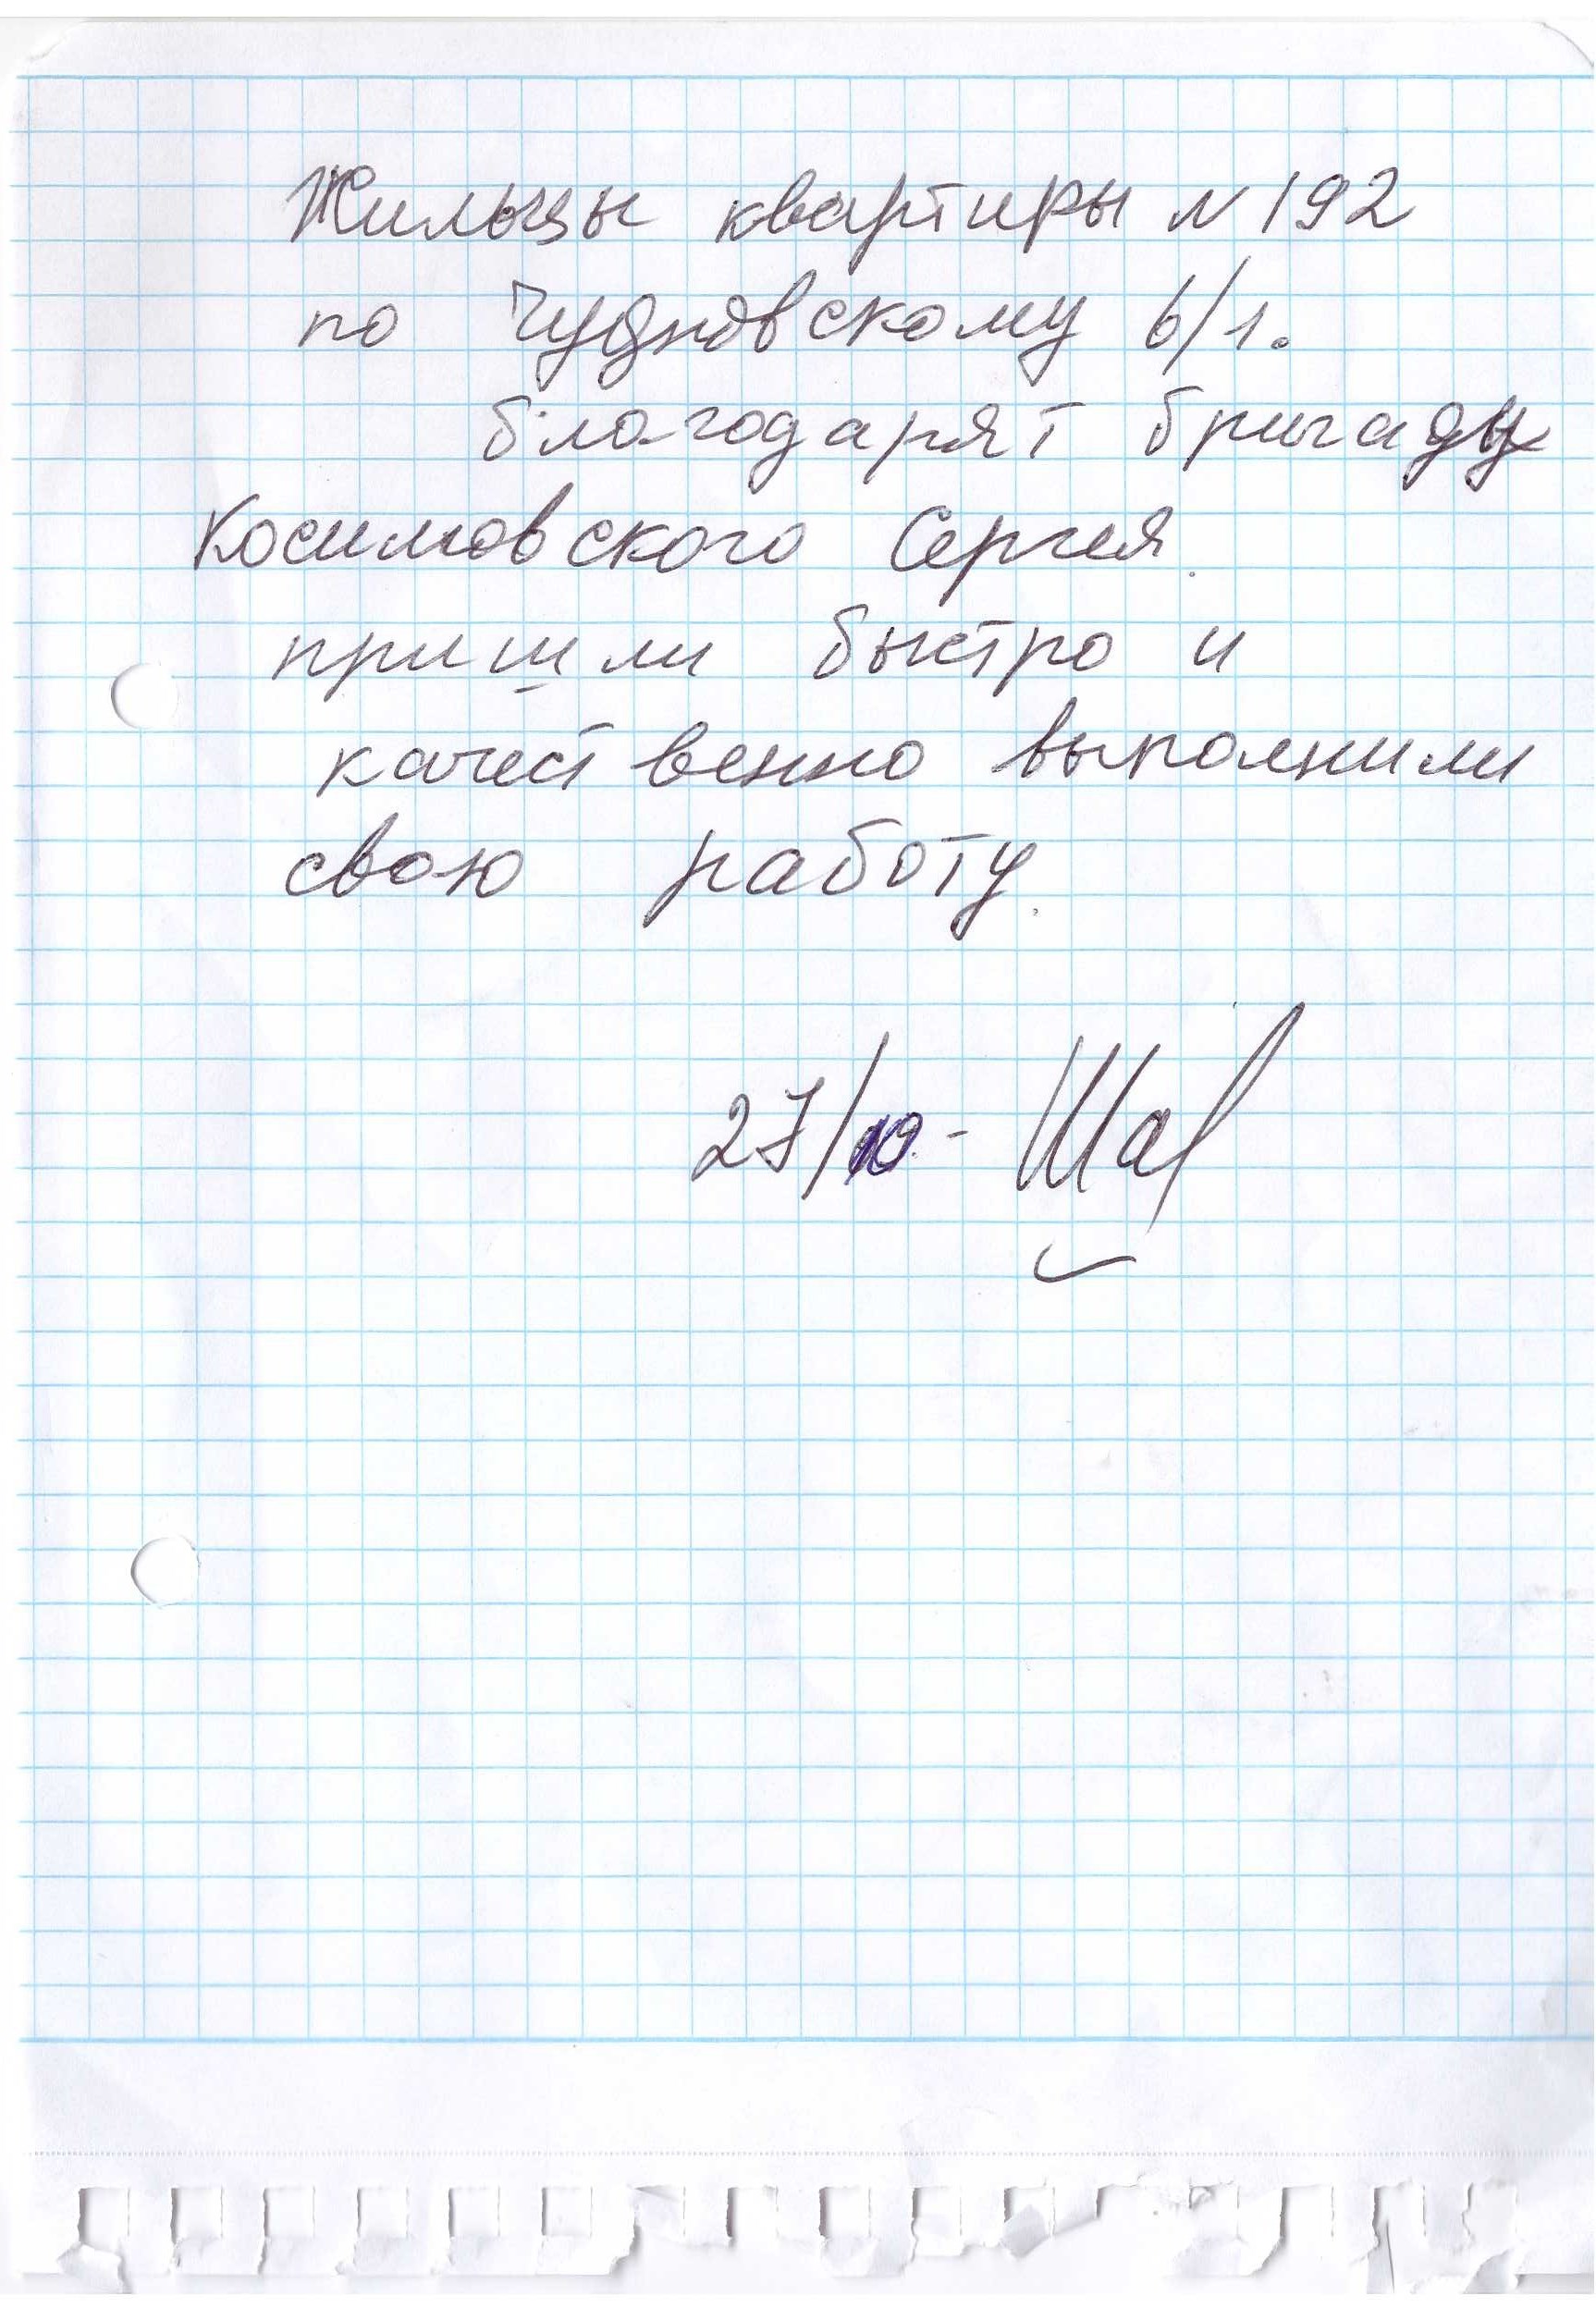 Жильцы квартиры N 192
по Чудновскому 6/1.
благодарят бригаду
Косимовского Сергея.
пришли быстро и
качественно выполнили
свою работу.
27/10. -